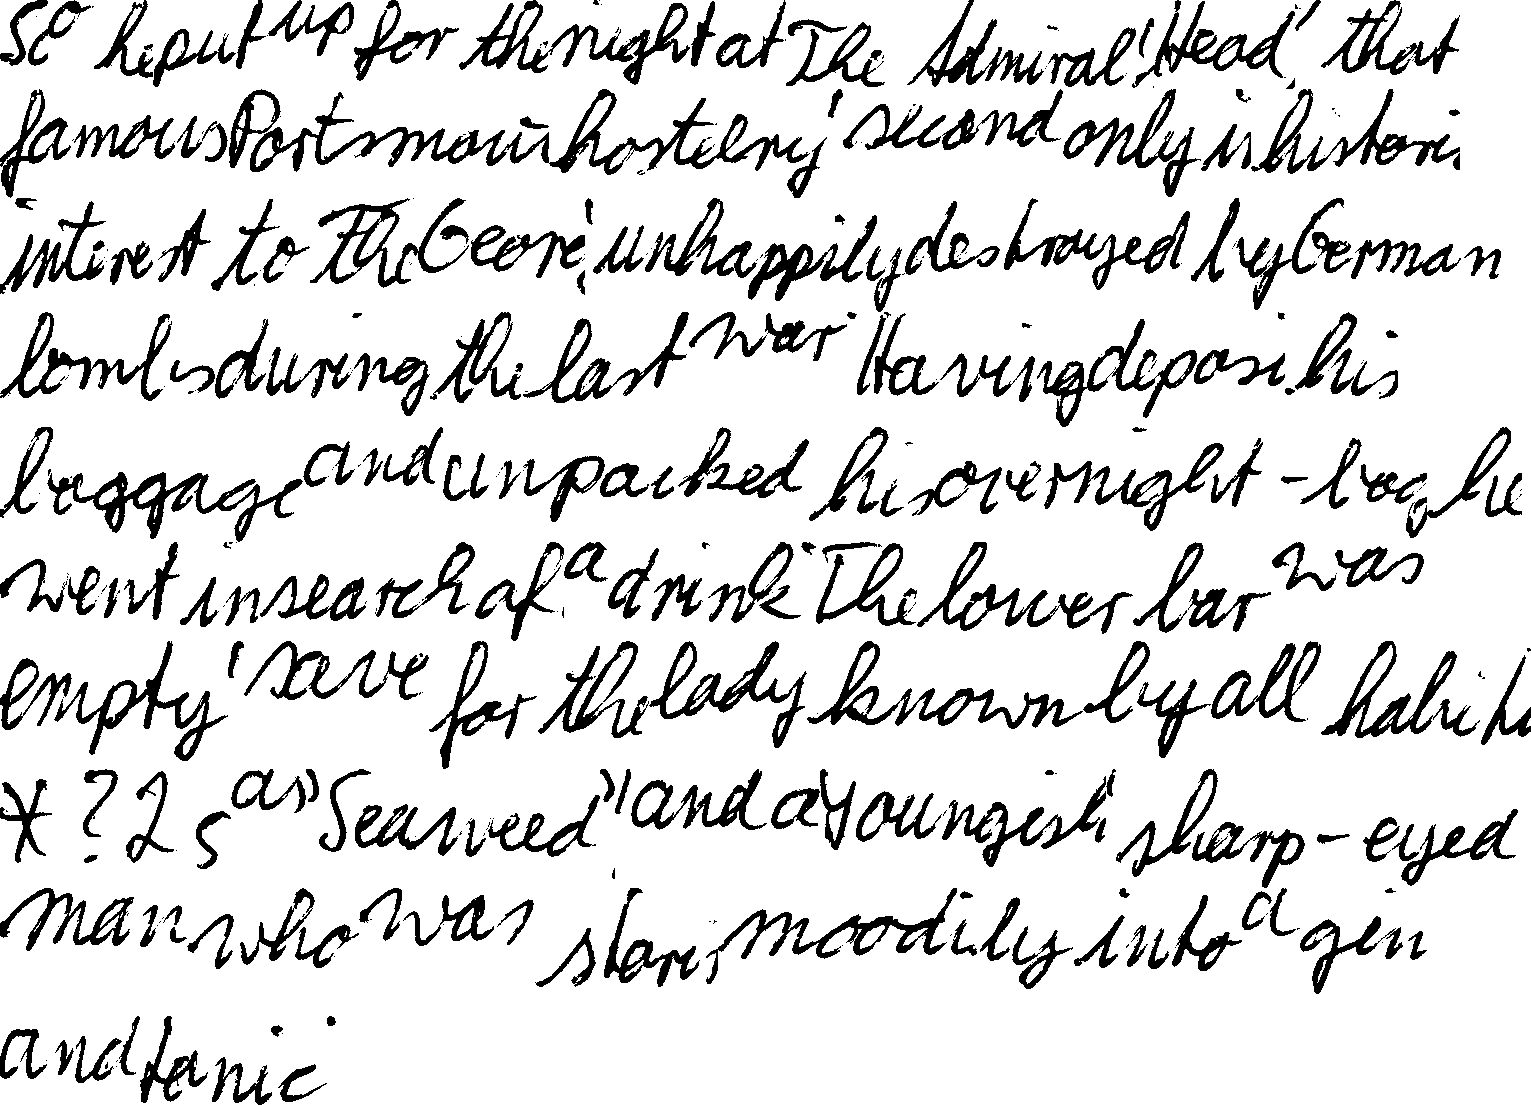 So he put up for the night at The Admiral's Head, that
famous Portsmouth hostelry, second only in historic
interest to The George, unhappily destroyed by German
bombs during the last war. Having deposi. his
luggage and unpacked his overnight-bag he
went in search of a drink. The lower bar was
empty, save for the lady known by all habitu
*?25 as "Seaweed", and a youngish, sharp-eyed
man who was staring moodily into a gin
and tonic.